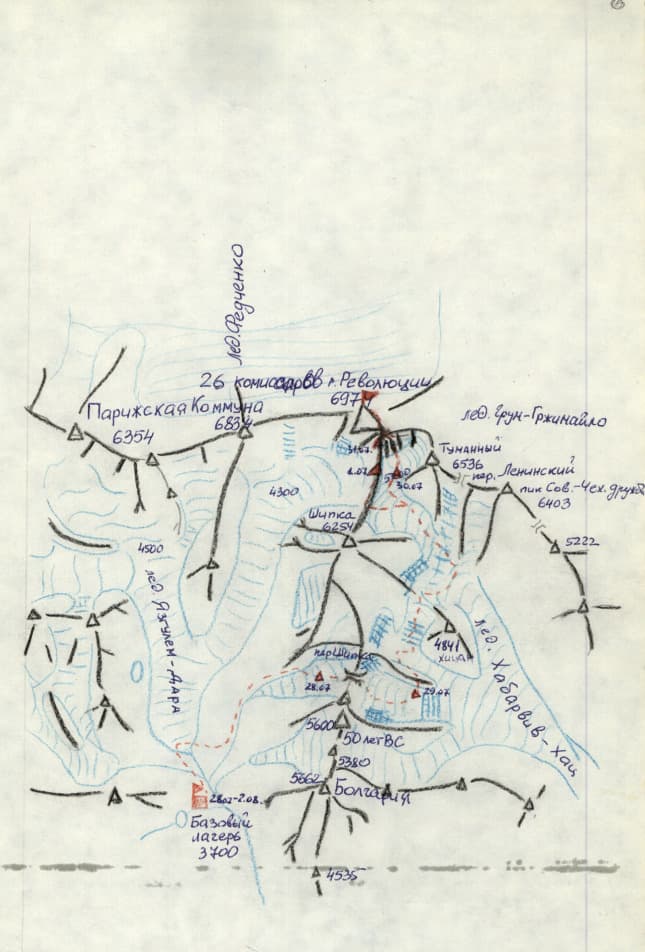 лед. Федченко
26 комиссаров п. Революции
697
Парижская Коммуна
6354
6834
лед. Грум-Гржимайло
Туманный
6536
пер. Ленинский
пик Сов.-Чех. дружб
6403
31.07.
1.07
30.07
4300
Шипка
6254
4500
5222
лед. Язгулем-Дара
4841
лед. Хабарвив-хац
пер. Шипка
28.07
29.07
5600
50 лет ВС
5380
5662
Болгария
28.07-2.08.
Базовый
лагерь
3700
4535